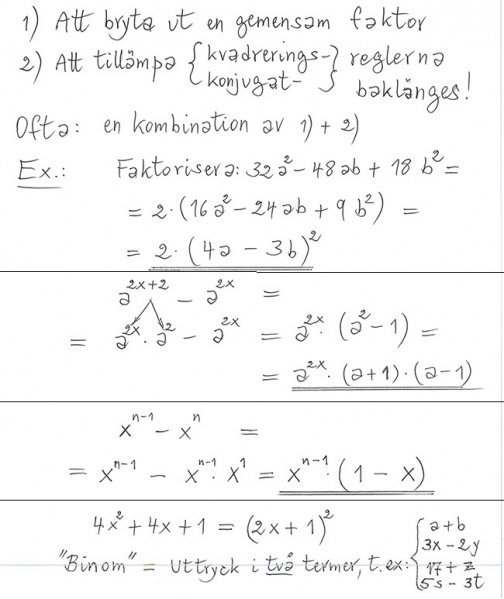 1) Att bryta ut en gemensam faktor
2) Att tillämpa {kvadrerings-/konjugat-} reglerna baklänges!
Ofta: en kombination av 1) + 2)
Ex.: Faktorisera: 32a² - 48ab + 18b² =
= 2·(16a² - 24ab + 9b²) =
= 2·(4a - 3b)²
a^(2x+2) - a^(2x) =
= a^(2x)·a² - a^(2x) = a^(2x)·(a² - 1) =
= a^(2x)·(a+1)·(a-1)
x^(n-1) - x^n =
= x^(n-1) - x^(n-1)·x¹ = x^(n-1)·(1 - x)
4x² + 4x + 1 = (2x + 1)²
"Binom" = Uttryck i två termer, t.ex: { a+b
3x - 2y
17 + z
5s - 3t